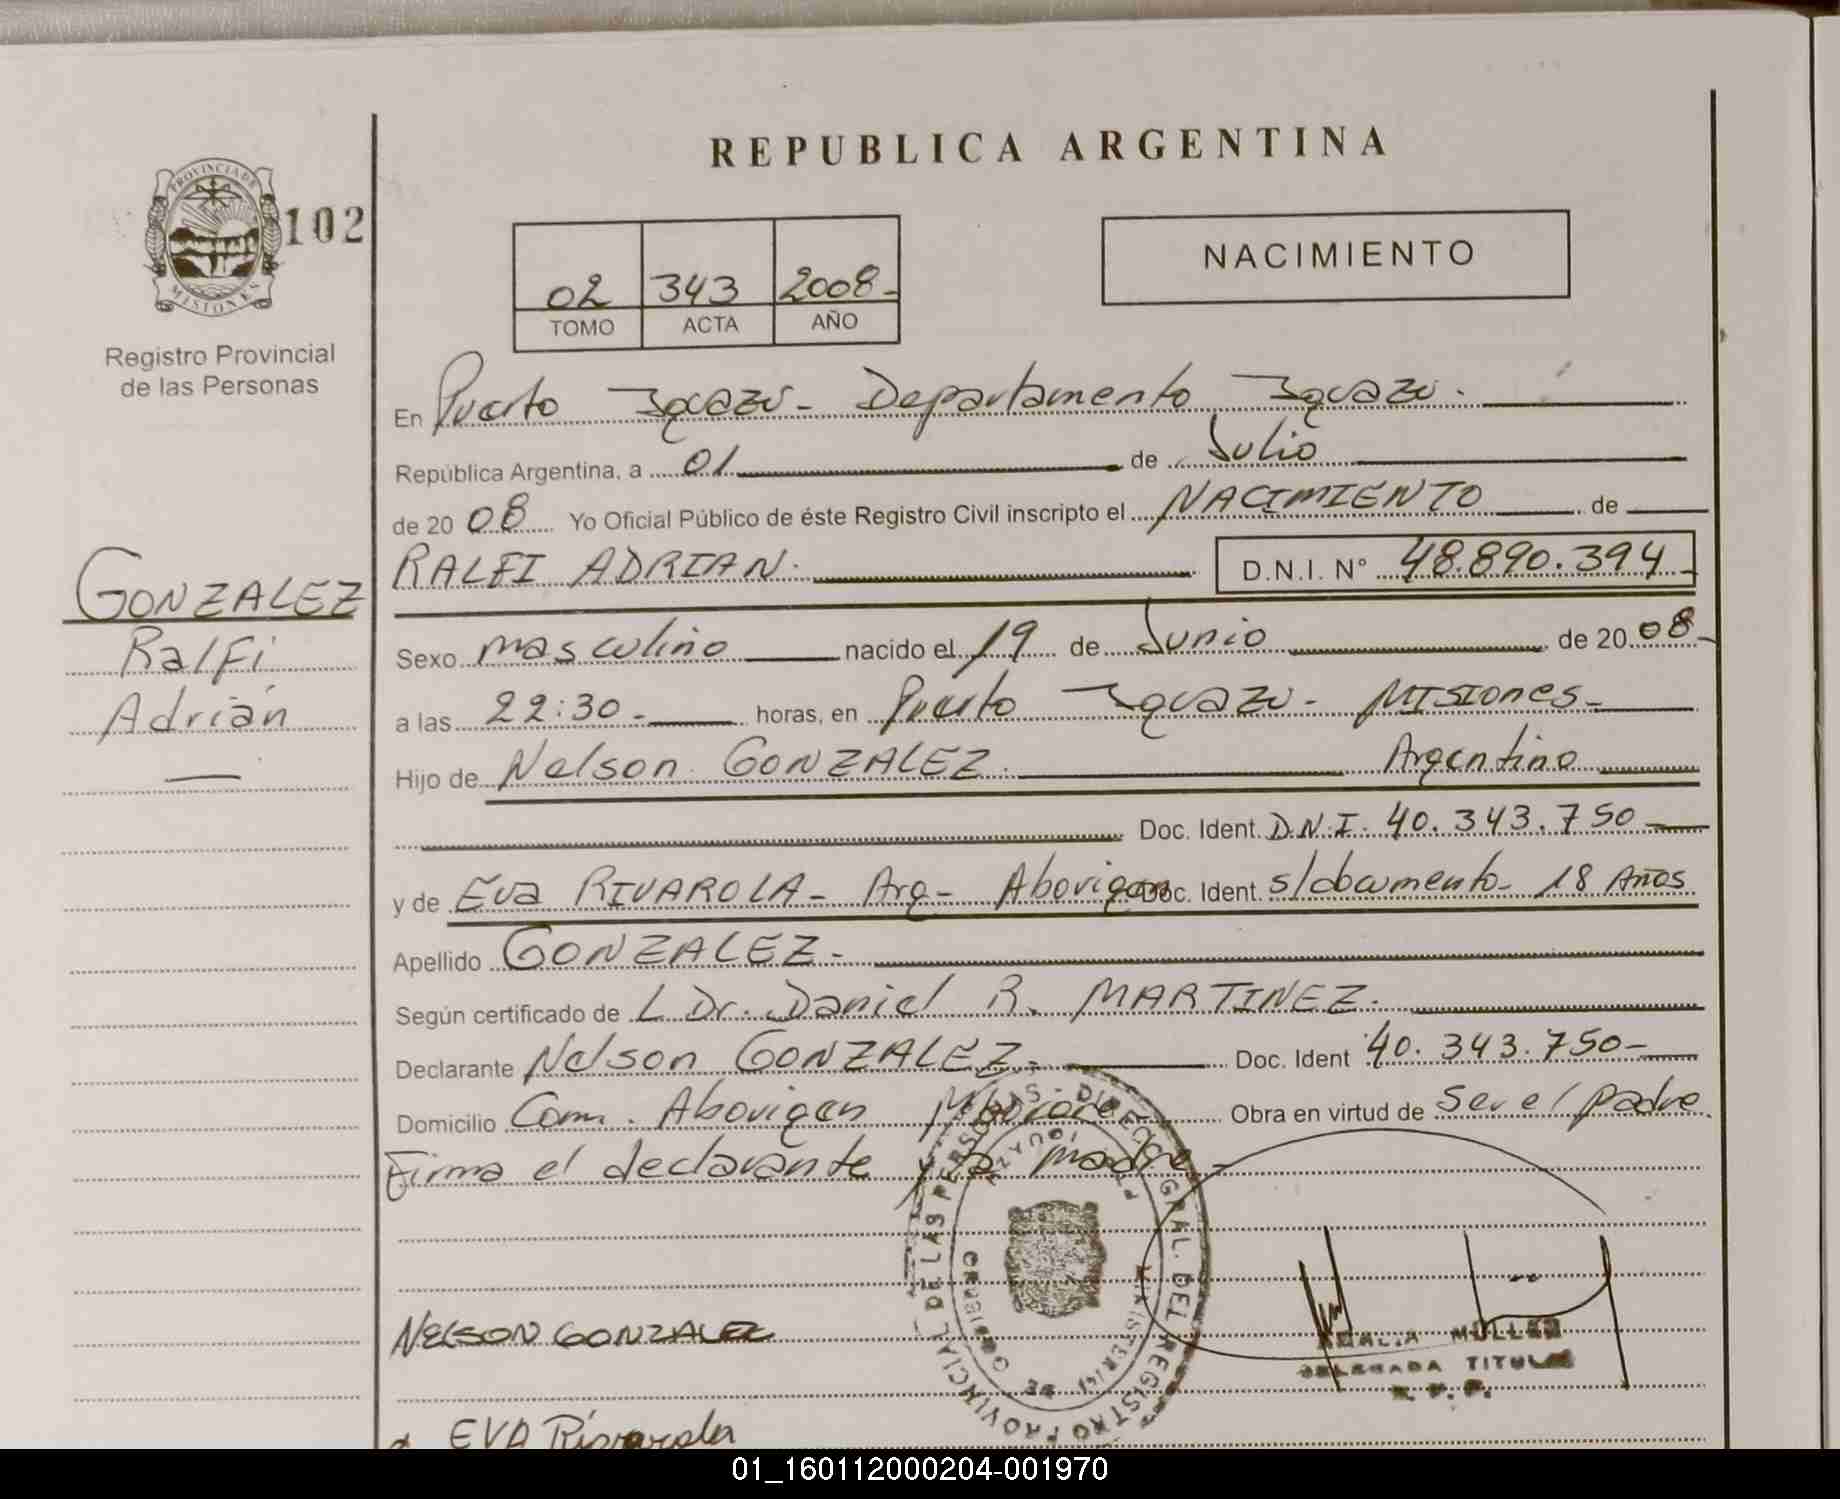 REPUBLICA ARGENTINA
PROVINCIA DE
MISIONES
102
Registro Provincial
de las Personas
02 343 2008-
TOMO ACTA AÑO
NACIMIENTO
En Puerto Iguazú - Departamento Iguazú.
República Argentina, a 01 de Julio
de 2008 Yo Oficial Público de éste Registro Civil inscripto el NACIMIENTO de
GONZALEZ
Ralfi
Adrián
RALFI ADRIAN. D.N.I. Nº 48.890.394-
Sexo masculino nacido el 19 de Junio de 2008-
a las 22:30- horas, en Puerto Iguazú - MISIONES-
Hijo de Nelson GONZALEZ. Argentino
Doc. Ident. D.N.I. 40.343.750
y de Eva RIVAROLA - Arg - Aborigen Doc. Ident. s/documento- 18 Años
Apellido GONZALEZ-
Según certificado de L Dr. Daniel R. MARTINEZ.
Declarante Nelson GONZALEZ- Doc. Ident 40.343.750-
Domicilio Com. Aborigen Obra en virtud de Ser el padre
Firma el declarante y la madre-
NELSON GONZALEZ
MULLER
DELEGADA TITULAR
R. P. P.
EVA Rivarola
REGISTRO PROVINCIAL DE LAS PERSONAS - DIRECC. GRAL. DEL
MINISTERIO DE GOBIERNO
01_160112000204-001970